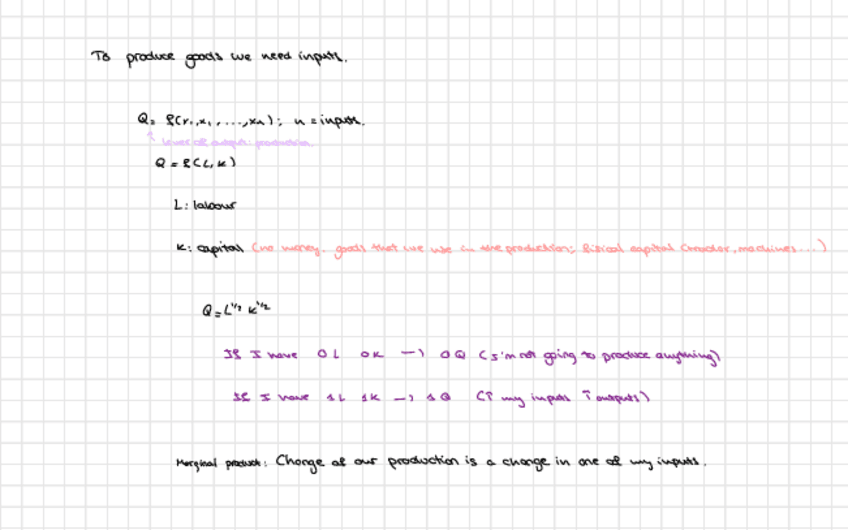 To produce goods we need inputs.
Q = f(x₁,x₁,...,xn); n = inputs.
level of output: production.
Q = f(L, K)
L: labour
K: capital (no money. goods that we use in the production; fisical capital machines...)
Q = L^1/2 K^1/2
If I have 0L 0K → 0Q (I'm not going to produce anything)
If I have 1L 1K → 1Q (↑ my inputs ↑ outputs)
Marginal product: Change of our production is a change in one of my inputs.